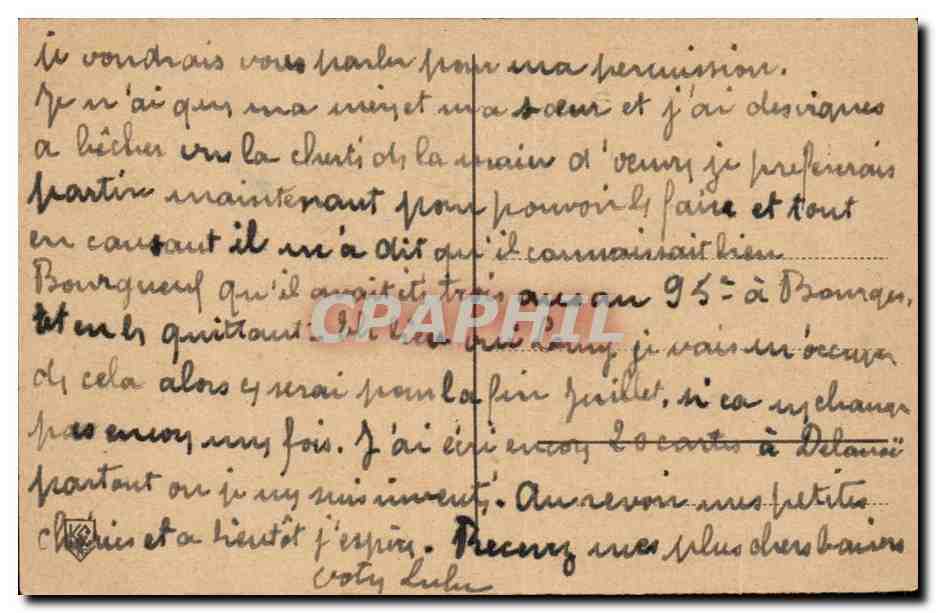 je voudrais vous parler pour ma permission.
Je n'ai que ma mère et ma sœur et j'ai des vignes
a bêcher vu la cherté de la main d'œuvre je prefererais
partir maintenant pour pouvoir le faire et tout
en causant il m'a dit qu'il connaissait bien
Bourgueuil qu'il avait été trois ans au 95e à Bourges.
Et en le quittant il dit oui Lulu je vais m'occuper
de cela alors ce serai pour la fin Juillet, si ca ne change
pas encore une fois. J'ai écri encore 20 cartes à Delanoë
partout ou je me suis inventé. Au revoir mes petites
chéries et a bientôt j'espère. Recevez mes plus chers baisers
CPAPHIL
votre Lulu